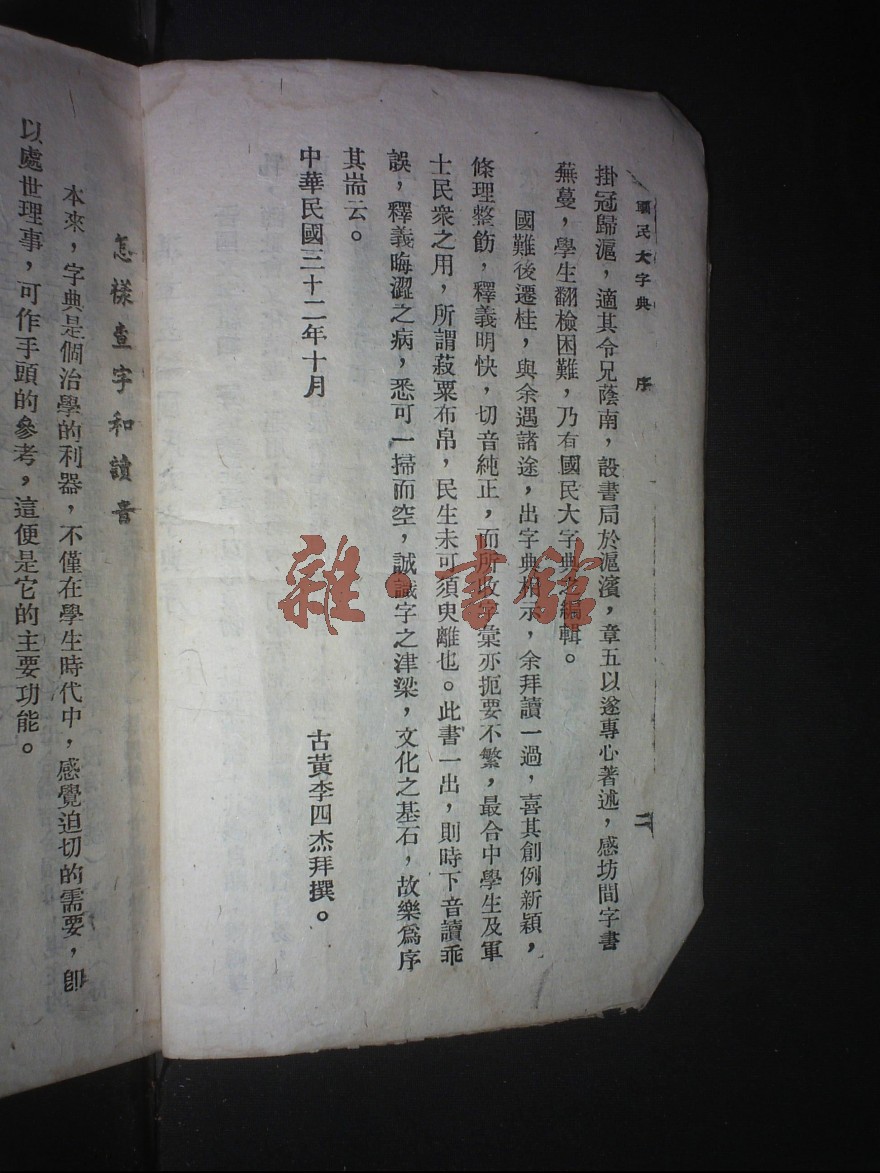 國民大字典 序 二
掛冠歸滬，適其令兄蔭南，設書局於滬濱，章五以遂專心著述，感坊間字書
蕪蔓，學生翻檢困難，乃有國民大字典之編輯。
國難後遷桂，與余遇諸途，出字典相示，余拜讀一過，喜其創例新穎，
條理整飭，釋義明快，切音純正，而所收字彙亦扼要不繁，最合中學生及軍
士民衆之用，所謂菽粟布帛，民生未可須臾離也。此書一出，則時下音讀乖
誤，釋義晦澀之病，悉可一掃而空，誠識字之津梁，文化之基石，故樂爲序
其耑云。
中華民國三十二年十月
古黃李四杰拜撰。
怎樣查字和讀音
本來，字典是個治學的利器，不僅在學生時代中，感覺迫切的需要，卽
以處世理事，可作手頭的參考，這便是它的主要功能。
雜·書館